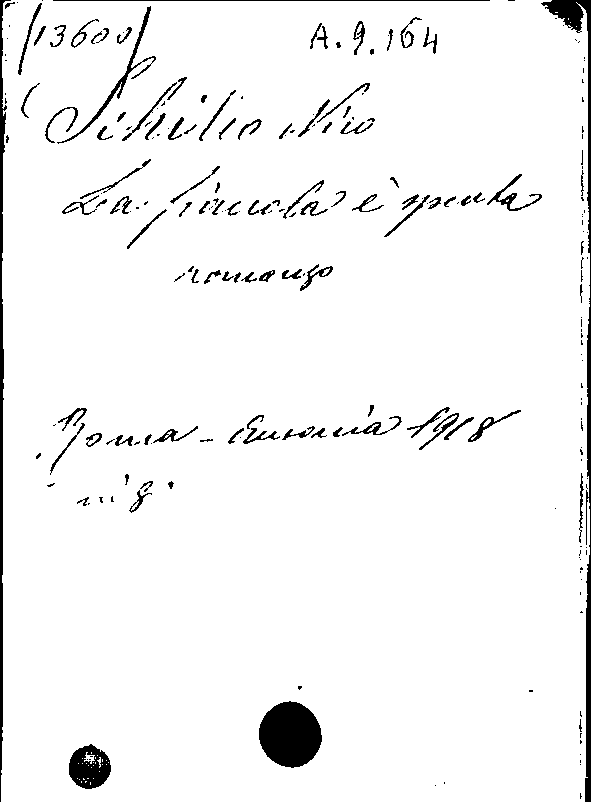 13600 A.9.164
Schilirò Nino
La fiaccola è spenta
romanzo
Roma - Ausonia 1918
in 8°